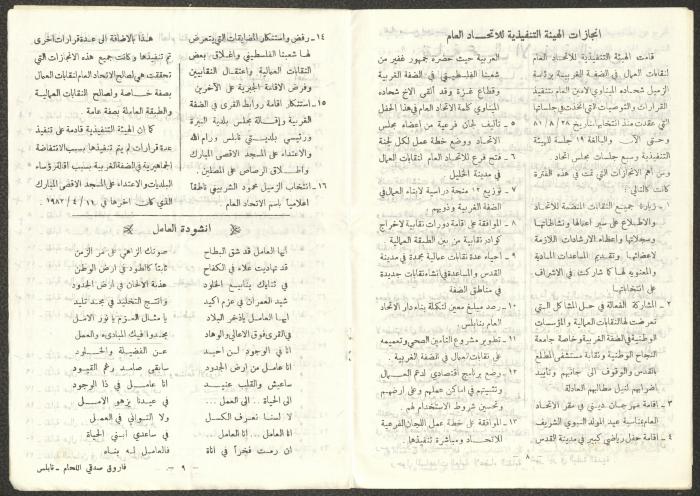 انجازات الهيئة التنفيذية للاتحاد العام
قامت الهيئة التنفيذية للاتحاد العام
لنقابات العمال في الضفة الغربية برئاسة
الزميل شحاده المناوي الامين العام بتنفيذ
القرارات والتوصيات التي اتخذت في جلساتها
التي عقدت منذ انتخابها بتاريخ ٢٨ / ٨ / ٨١
وحتى الآن والبالغة ١٩ جلسة للهيئة
التنفيذية وسبع جلسات مجلس اتحاد.
ومن أهم الانجازات التي تمت في هذه الفترة
كانت كالتالي:
١ - زيارة لجميع النقابات المنضمة للاتحاد
والاطلاع على سير اعمالها ونشاطاتها
وسجلاتها واعطاء الارشادات اللازمة
لاعضائها وتقديم المساعدات المادية
والمعنوية لها كما شاركت في الاشراف
على انتخاباتها
٢ - المشاركة الفعالة في حل المشاكل التي
تعرضت لها النقابات العمالية والمؤسسات
الوطنية في الضفة الغربية وخاصة جامعة
النجاح الوطنية ونقابة مستشفى المطلع
القدس والوقوف الى جانبهم وتأييد
اضرابهم لنيل مطالبهم العادلة
٣ - اقامة مهرجان ديني في مقر الاتحاد
العام بمناسبة عيد المولد النبوي الشريف
٤ - اقامة حفل رياضي كبير في مدينة القدس
العربية حيث حضره جمهور غفير من
شعبنا الفلسطيني في الضفة الغربية
وقطاع غزة وقد ألقى الاخ شحاده
المناوي كلمة الاتحاد العام في هذا الحفل
٥ - تأليف لجان فرعية من اعضاء مجلس
الاتحاد ووضع خطة عمل لكل لجنة
٦ - فتح فرع للاتحاد العام لنقابات العمال
في مدينة الخليل
٧ - توزيع ١٢ منحة دراسية لابناء العمال في
الضفة الغربية وذويهم.
٨ - الموافقة على اقامة دورات نقابية لاخراج
كوادر نقابية من بين الطبقة العمالية.
٩ - احياء عدة نقابات عمالية مجمدة في مدينة
القدس والمساعدة في انشاء نقابات جديدة
في مناطق الضفة
١٠ - رصد مبلغ معين لتكملة بناء دار الاتحاد
العام بنابلس.
١١ - تطوير مشروع التأمين الصحي وتعميمه
على نقابات العمال في الضفة الغربية.
١٢ - وضع برنامج اقتصادي لدعم العمال
وتثبيتهم في اماكن عملهم وعلى ارضهم
وتحسين شروط الاستخدام لهم.
١٣ - الموافقة على خطة عمل اللجان الفرعية
للاتحاد ومباشرة تنفيذها.
- ٨ -
١٤ - رفض واستنكار المضايقات التي يتعرض
لها شعبنا الفلسطيني واغلاق بعض
النقابات العمالية واعتقال النقابيين
وفرض الاقامة الجبرية على الآخرين
١٥ - استنكار اقامة روابط القرى في الضفة
الغربية واقالة مجلس بلدية البيرة
ورئيسي بلديتي نابلس ورام الله
والاعتداء على المسجد الاقصى المبارك
واطلاق الرصاص على المصلين.
١٦ - انتخاب الزميل محمود الشربيني ناطقا
اعلاميا باسم الاتحاد العام
هذا بالاضافة الى عدة قرارات اخرى
تم تنفيذها وكانت جميع هذه الانجازات التي
تحققت هي لصالح الاتحاد العام لنقابات العمال
بصفة خاصة ولصالح النقابات العمالية
والطبقة العاملة بصفة عامة.
كما ان الهيئة التنفيذية قادمة على تنفيذ
عدة قرارات لم يتم تنفيذها بسبب الانتفاضة
الجماهيرية في الضفة الغربية بسبب اقالة رؤساء
البلديات والاعتداء على المسجد الاقصى المبارك
الذي كان آخرها في ١١ / ٤ / ١٩٨٢.
انشودة العامل
ايها العامل قد شق البطاح
صوتك الزاهي على مر الزمن
قد تهاديت علاء في الكفاح
ثابتا كالطود في ارض الوطن
في ثناياك ينابيع الخلود
هذبة الالحان في ارض الجدود
شيد العمران في عزم اكيد
وانتج التخليد في مجد تليد
ايها العامل يا ذخر البلاد
يا مشال العزم يا نور الامل
في القرى فوق الاعالي والوهاد
مجدوا فيك المبادىء والعمل
انا في الوجود لن احيد
عن الفضيلة والخلود
انا عامل من ارض الجدود
سابقى صامد رغم القيود
ساعيش والقلب عنيد
انا عامل في ذا الوجود
الى الحياة .. الى العمل ..
في عيدنا يزهو الامل
لا لسنا نعرف الكسل
ولا التواني في العمل
انا العامل .. انا العامل ..
في ساعدي ابني الحياة
ان رمت فخرا في اناة
فالعامل له بناه
فاروق صدقي اللحام - نابلس
- ٩ -